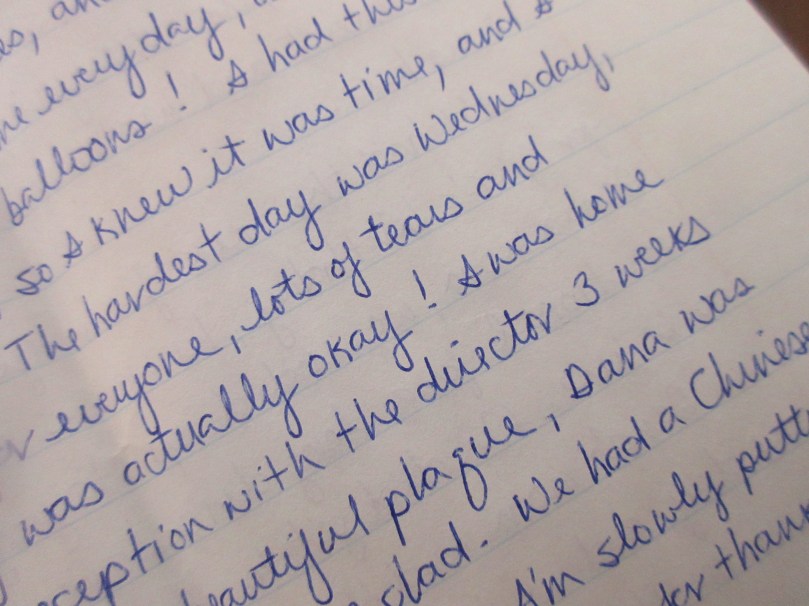 everyday,
balloons! I had this
so I knew it was time, and I
The hardest day was Wednesday,
everyone, lots of tears and
was actually okay! I was home
with the director 3 weeks
beautiful plaque, Dana was
glad. We had a Chinese
I'm slowly putt
for thank